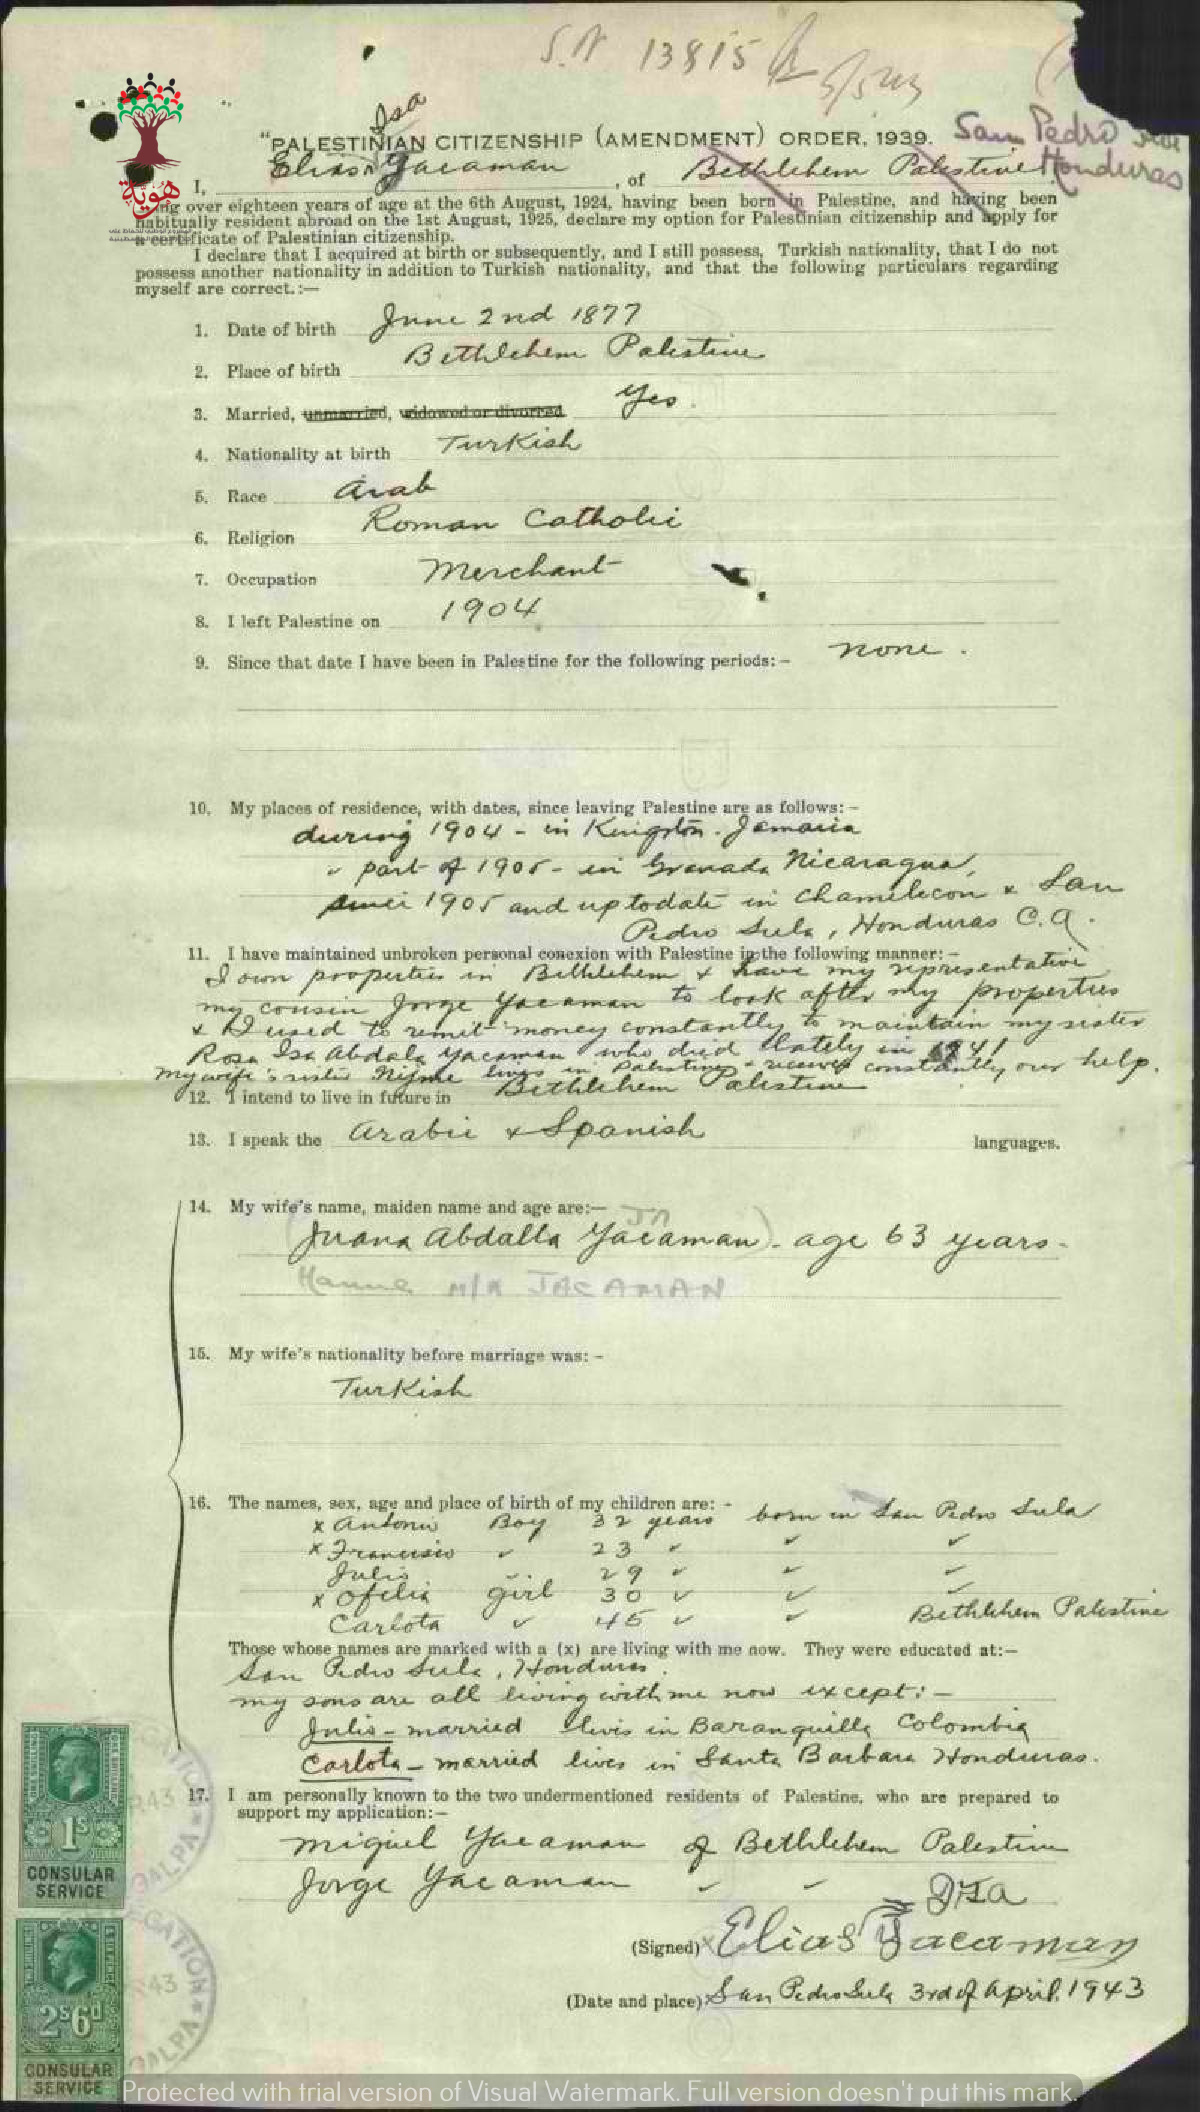 S.N 13815
5/5/43
"PALESTINIAN CITIZENSHIP (AMENDMENT) ORDER, 1939.
San Pedro Sula
Honduras
Isa
I, Elias Yacaman, of Bethlehem Palestine
هوية
being over eighteen years of age at the 6th August, 1924, having been born in Palestine, and having been
habitually resident abroad on the 1st August, 1925, declare my option for Palestinian citizenship and apply for
a certificate of Palestinian citizenship.
I declare that I acquired at birth or subsequently, and I still possess, Turkish nationality, that I do not
possess another nationality in addition to Turkish nationality, and that the following particulars regarding
myself are correct.:—
1. Date of birth June 2nd 1877
2. Place of birth Bethlehem Palestine
3. Married, unmarried, widowed or divorced Yes.
4. Nationality at birth Turkish
5. Race Arab
6. Religion Roman Catholic
7. Occupation Merchant
8. I left Palestine on 1904
9. Since that date I have been in Palestine for the following periods:- none.
10. My places of residence, with dates, since leaving Palestine are as follows:-
during 1904 - in Kingston. Jamaica
" part of 1905 - in Granada Nicaragua,
since 1905 and up to date in Chamelecon & San
Pedro Sula, Honduras C.A.
11. I have maintained unbroken personal conexion with Palestine in the following manner:-
I own properties in Bethlehem & have my representative
my cousin Jorge Yacaman to look after my properties
& I used to remit money constantly to maintain my sister
Rosa Isa Abdala Yacaman who died lately in 1941
my wife's sister Nijme lives in Palestine & receives constantly our help.
12. I intend to live in future in Bethlehem Palestine
13. I speak the Arabic & Spanish languages.
14. My wife's name, maiden name and age are:—
Juana Abdalla Yacaman - age 63 years -
Hanna n/a JACAMAN
15. My wife's nationality before marriage was:-
Turkish
16. The names, sex, age and place of birth of my children are:-
x Antonio Boy 32 years born in San Pedro Sula
x Francisco " 23 " " "
Julio " 29 " " "
x Ofelia girl 30 " " "
Carlota " 45 " " Bethlehem Palestine
Those whose names are marked with a (x) are living with me now. They were educated at:—
San Pedro Sula, Honduras.
my sons are all living with me now except:-
Julio - married lives in Baranquilla Colombia
Carlota - married lives in Santa Barbara Honduras.
17. I am personally known to the two undermentioned residents of Palestine, who are prepared to
support my application:—
Miguel Yacaman of Bethlehem Palestine
Jorge Yacaman " "
ISA
(Signed) x Elias Yacaman
(Date and place) San Pedro Sula 3rd of April. 1943
1s
CONSULAR
SERVICE
2s6d
CONSULAR
SERVICE
Protected with trial version of Visual Watermark. Full version doesn't put this mark.